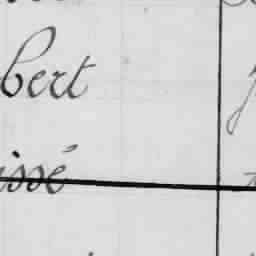 bert
issé